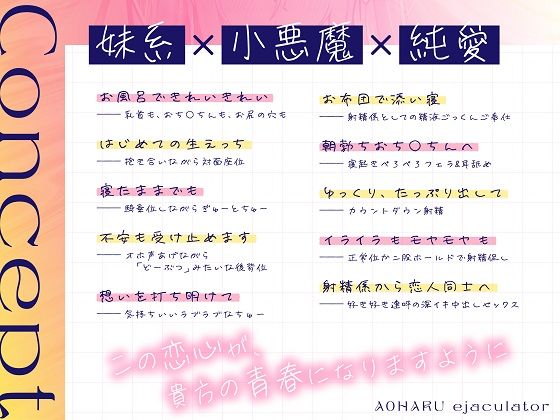 Concept
妹系×小悪魔×純愛
お風呂できれいきれい
乳首も、おち〇ちんも、お尻の穴も
はじめての生えっち
抱き合いながら対面座位
寝たままでも
騎乗位しながらぎゅーとちゅー
不安も受け止めます
オホ声あげながら
「どーぶつ」みたいな後背位
想いを打ち明けて
気持ちいいラブラブなちゅー
お布団で添い寝
射精係としての精液ごっくんご奉仕
朝勃ちおち〇ちんへ
寝起きぺろぺろフェラ&耳舐め
ゆっくり、たっぷり出して
カウントダウン射精
イライラもモヤモヤも
正常位か二股ホールドで射精促し
射精係から恋人同士へ
好き好き連呼の深イキ中出しセックス
この恋心が、
貴方の青春になりますように
AOHARU ejaculator